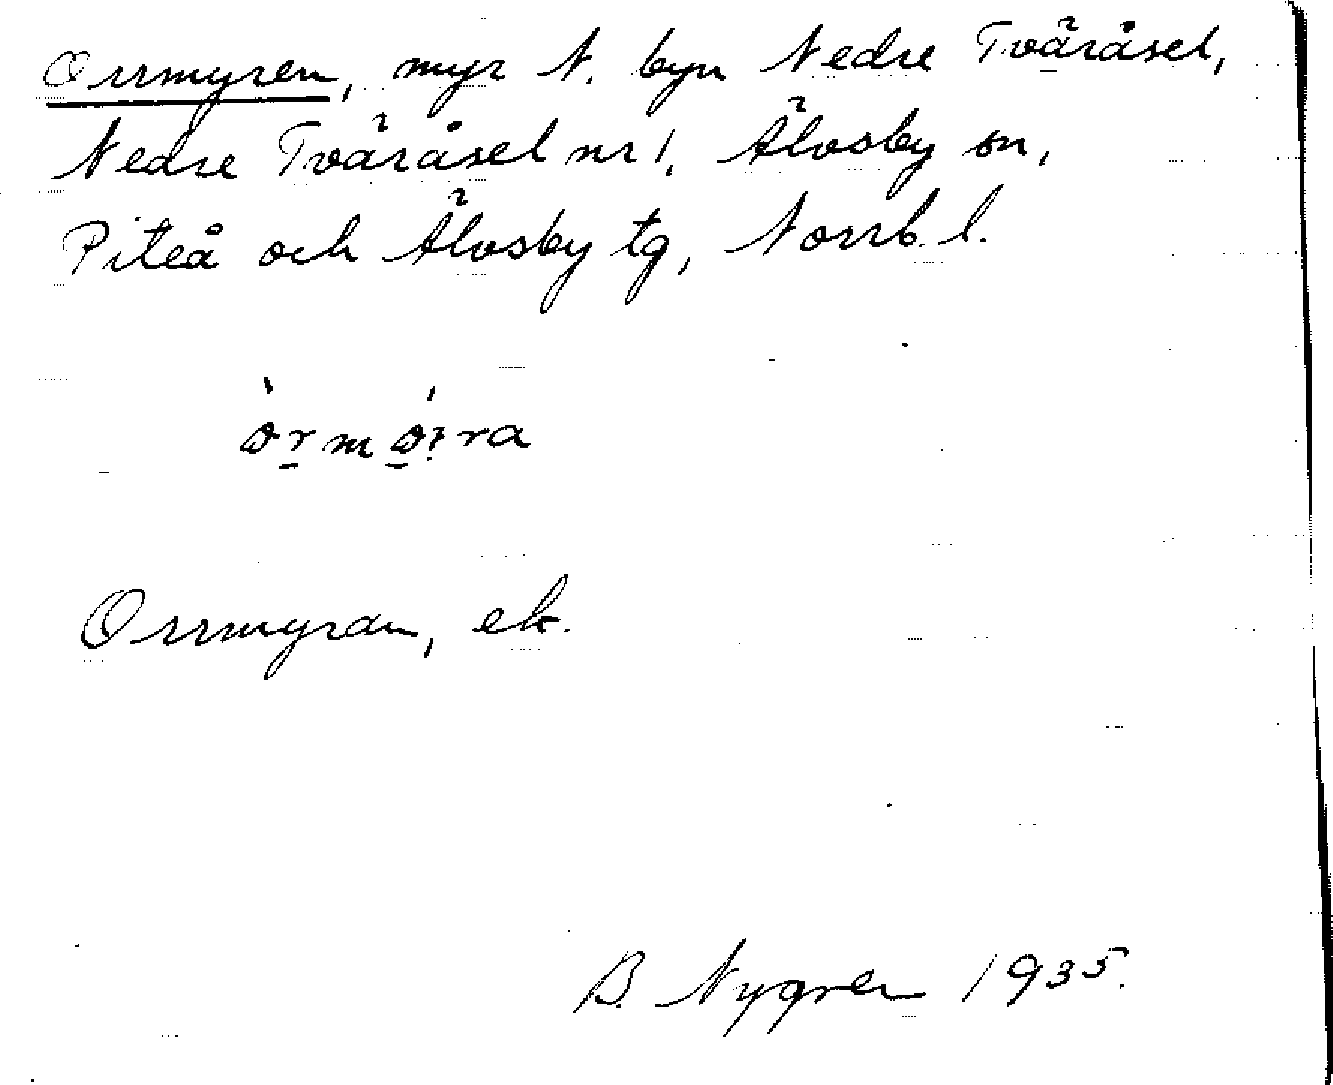 Orrmyren, myr N. byn Nedre Tväråsel,
Nedre Tväråsel nr 1, Älvsby sn,
Piteå och Älvsby tg, Norrb. l.
Orrmyran, ek.
B. Nygren 1935.